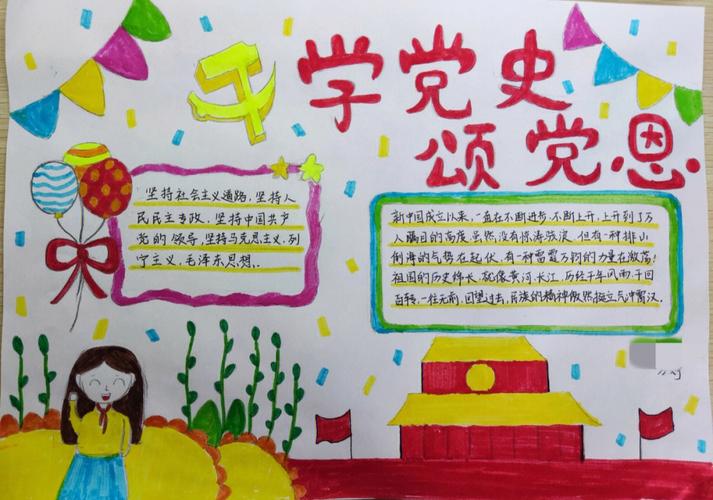 学党史
颂党恩
坚持社会主义道路,坚持人
民民主专政,坚持中国共产
党的领导,坚持马克思主义,列
宁主义,毛泽东思想.
新中国成立以来,一直在不断进步,不断上升,上升到了万
人瞩目的高度,虽然没有惊涛骇浪,但有一种排山
倒海的气势在起伏,有一种雷霆万钧的力量在激荡!
祖国的历史绵长,就像黄河、长江,历经千年风雨,千回
百转,一往无前,回望过去,民族的精神傲然挺立气冲霄汉.